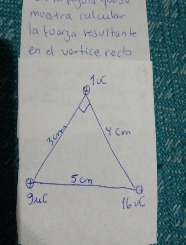 muestra calcular
la fuerza resultante
en el vertice recto
1uC
3cm
4cm
5cm
9uC
16uC